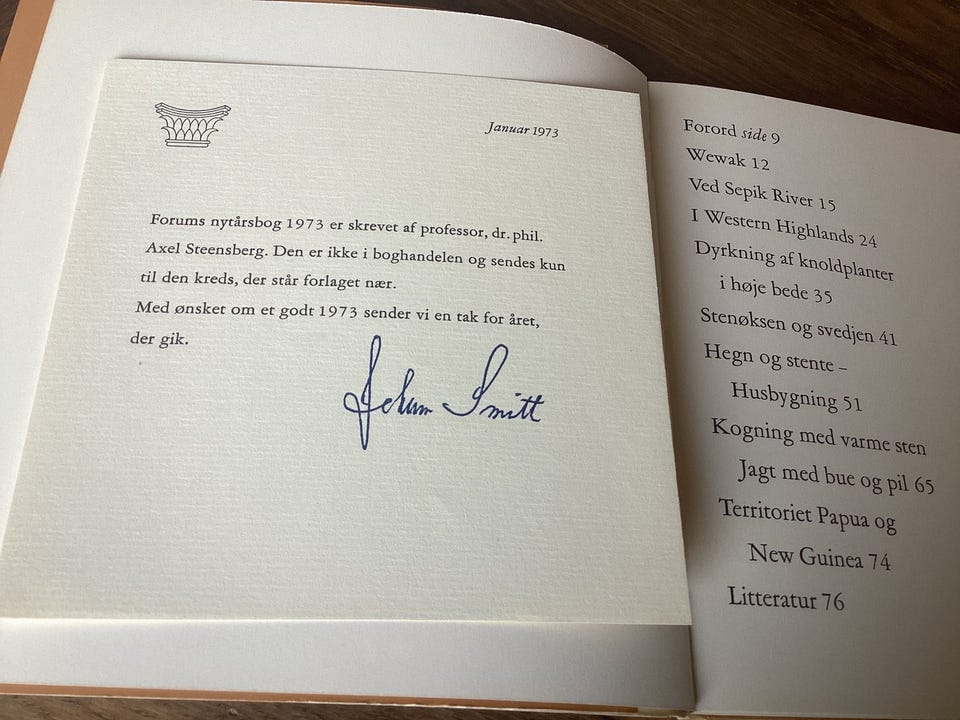 Januar 1973
Forums nytårsbog 1973 er skrevet af professor, dr. phil.
Axel Steensberg. Den er ikke i boghandelen og sendes kun
til den kreds, der står forlaget nær.
Med ønsket om et godt 1973 sender vi en tak for året,
der gik.
Smitt
Forord side 9
Wewak 12
Ved Sepik River 15
I Western Highlands 24
Dyrkning af knoldplanter
i høje bede 35
Stenøksen og svedjen 41
Hegn og stente –
Husbygning 51
Kogning med varme sten
Jagt med bue og pil 65
Territoriet Papua og
New Guinea 74
Litteratur 76